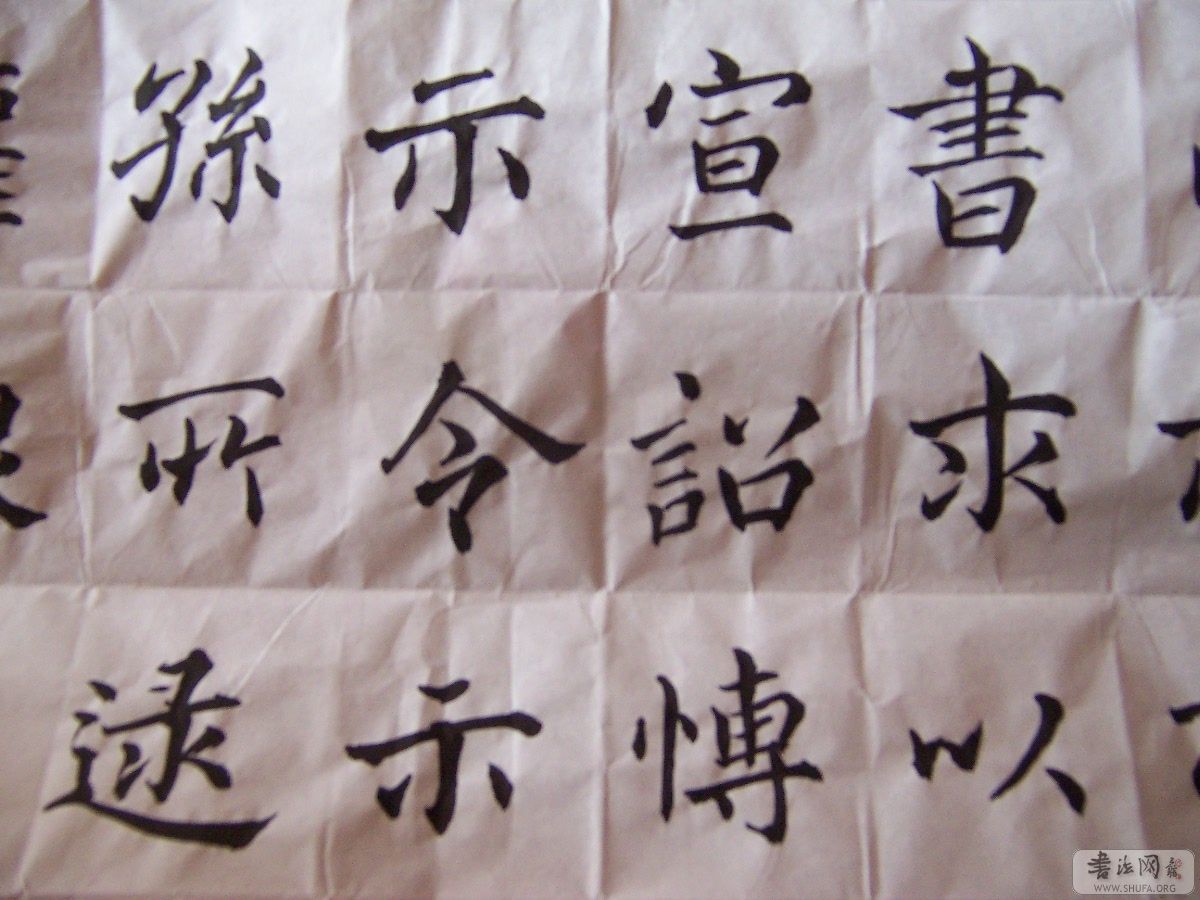 書宣示孫
求詔令所
以愽示逮
書法网
WWW.SHUFA.ORG